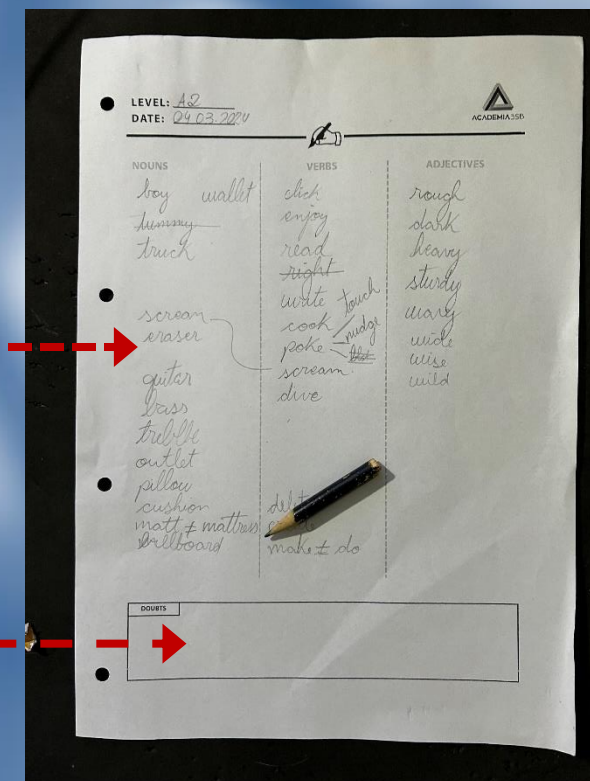 LEVEL: A2
DATE: 04.03.2024
ACADEMIA SSB
NOUNS
boy wallet
tummy
truck
scream
eraser
guitar
bass
trebble
outlet
pillow
cushion
matt ≠ mattress
billboard
VERBS
click
enjoy
read
right
write
cook
touch
poke
nudge
scream
dive
make ≠ do
ADJECTIVES
rough
dark
heavy
sturdy
wary
wide
wise
wild
DOUBTS